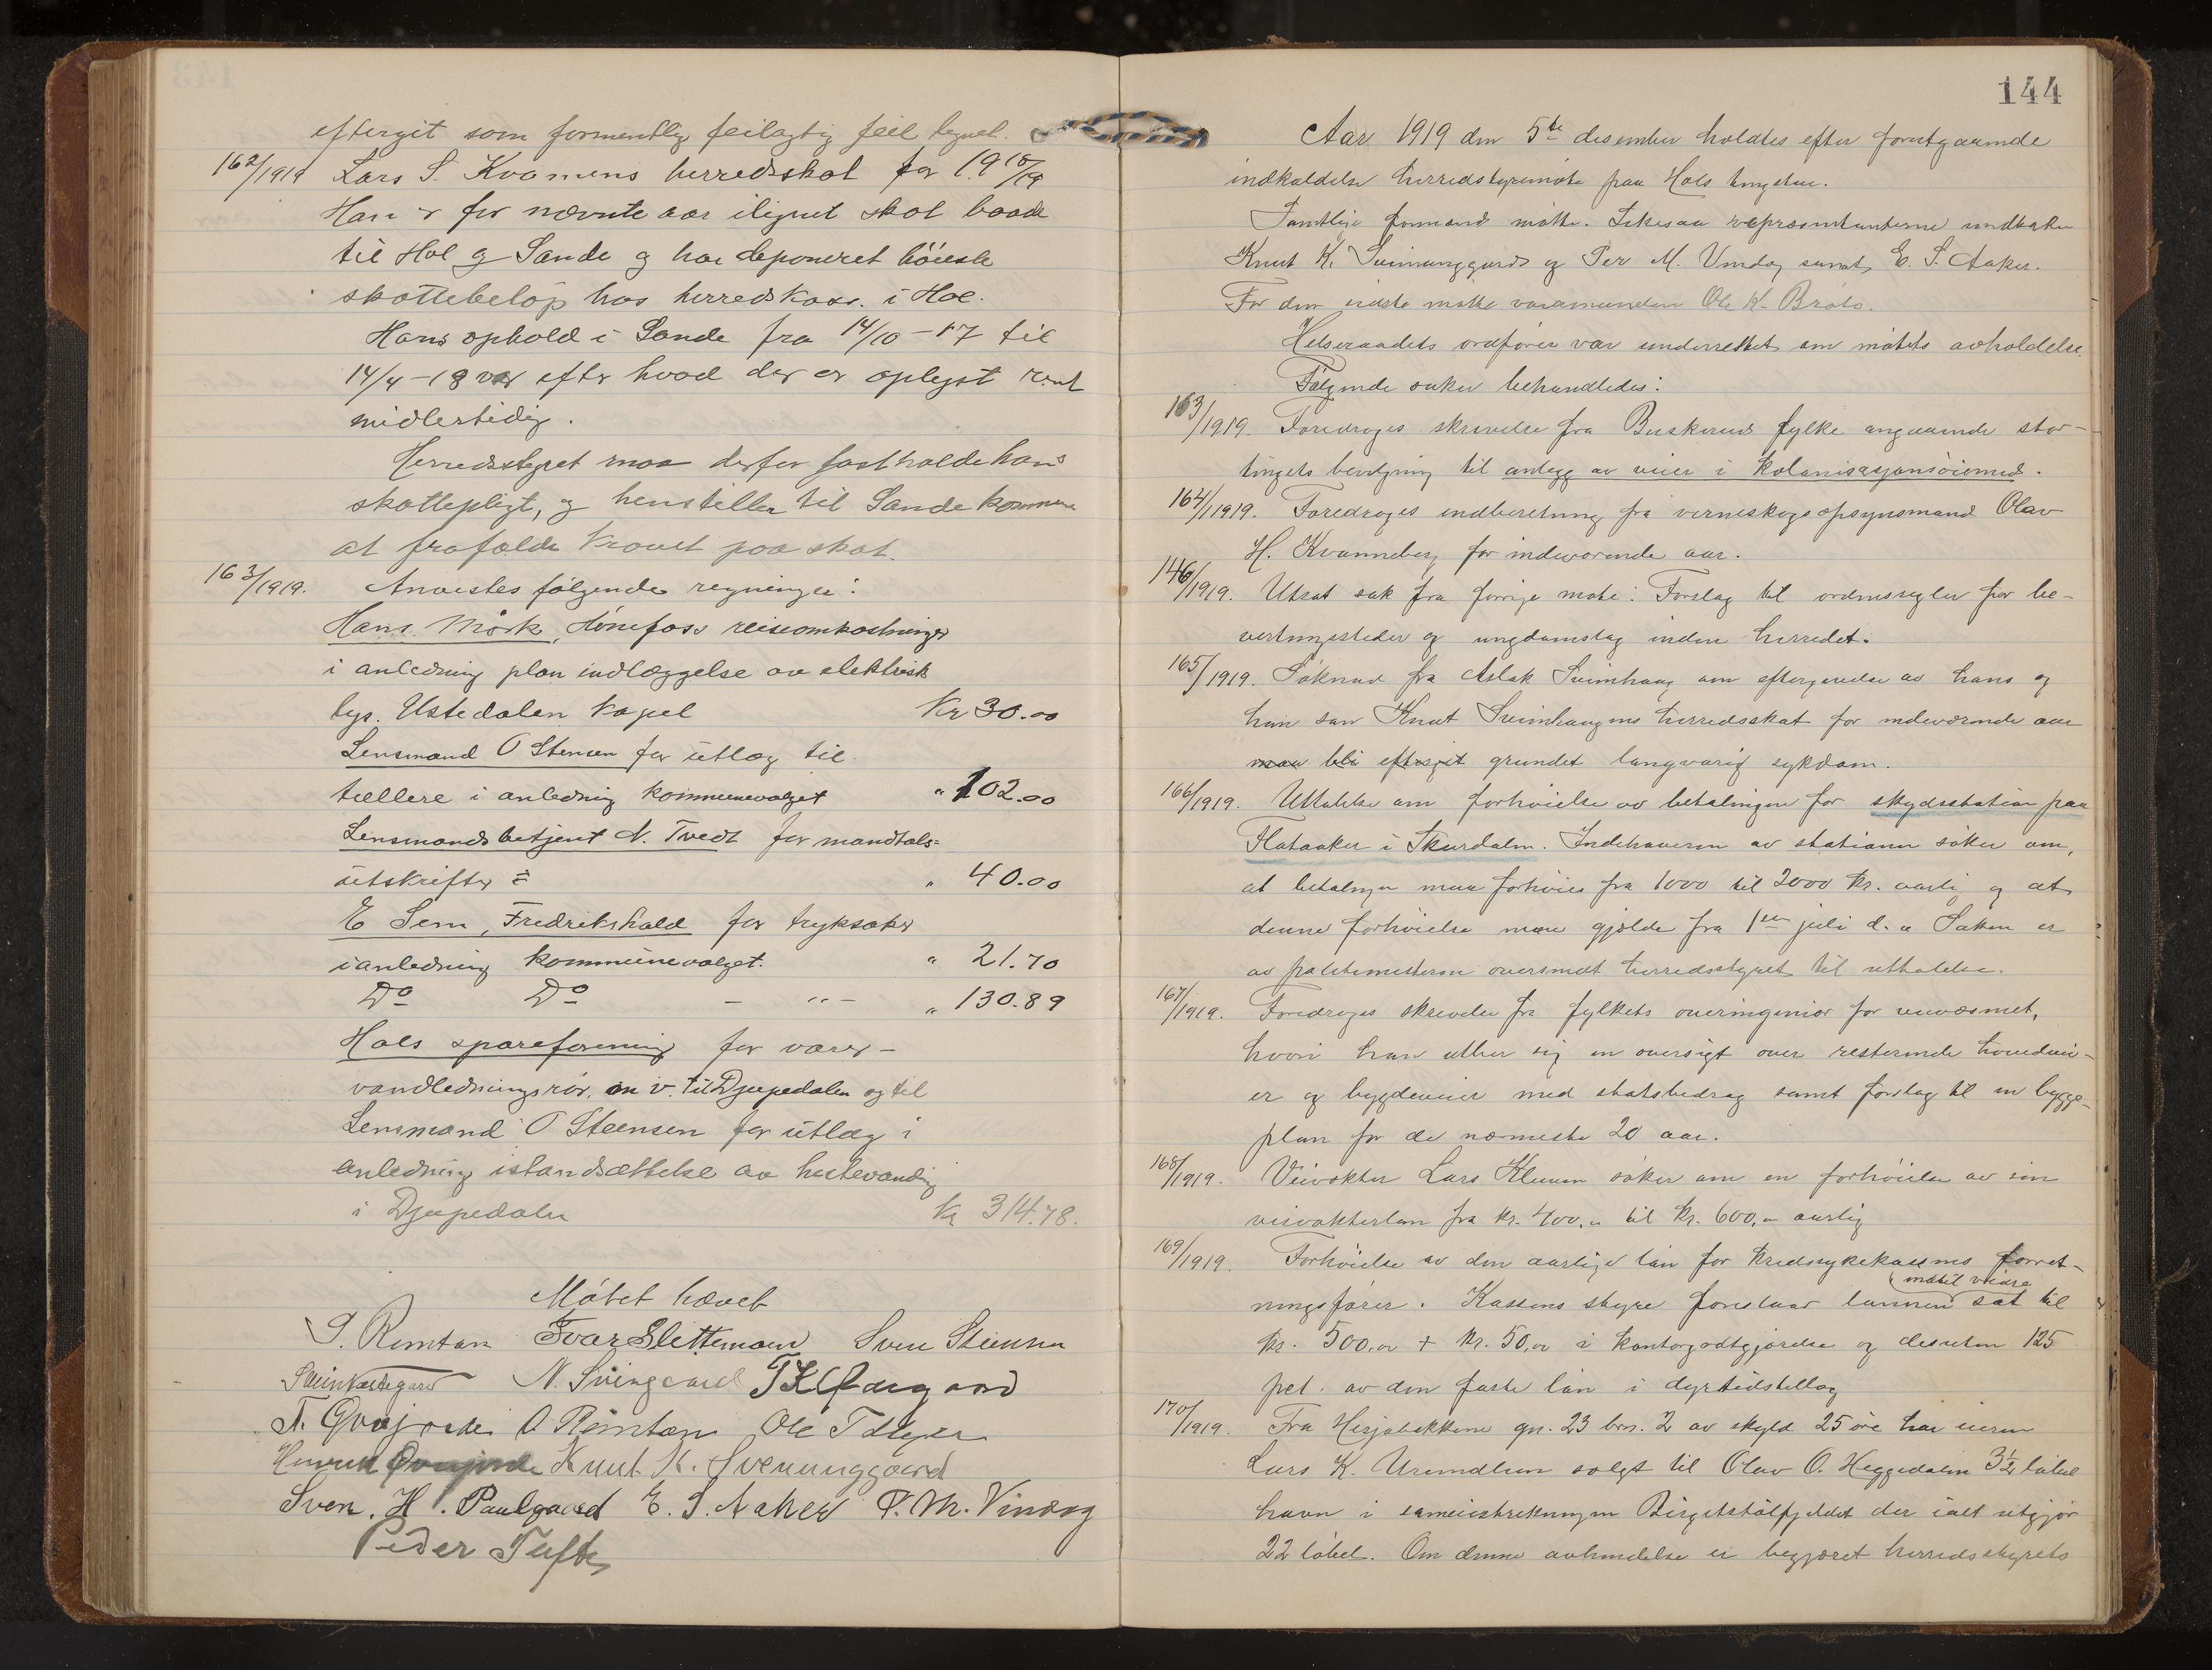 eftergit som formentlig feilagtig feil lignet.
162/1919 Lars S. Kvamens herredsskat for 1918/19
Han er for nævnte aar ilignet skat baade
til Hol og Sande og har deponeret höieste
skattebelöp hos herredskass. i Hol.
Hans ophold i Sande fra 14/10-17 til
14/4-18 var efter hvad der er oplyst rent
midlertidig.
Herredsstyret maa derfor fastholde hans
skattepligt, og henstiller til Sande kommune
at frafalde kravet paa skat.
163/1919. Anvistes følgende regninger:
Hans Mørk, Hönefoss reiseomkostninger
i anledning plan indlæggelse av elektrisk
lys. Ustedalen kapel Kr 30.00
Lensmand O Stensen for utlæg til
tællere i anledning kommunevalget " 102.00
Lensmandsbetjent N. Tvedt for mandtals=
utskrifter " 40.00
E Sem, Fredrikshald for tryksaker
i anledning kommunevalget. " 21.70
Do Do - " - " 130.89
Hols spareforening for varer -
vandledningsrör, m v. til Djupedalen og til
Lensmand O Steensen for utlæg i
anledning istandsættelse av hestevanding
i Djupedalen Kr 314.78.
Mötet hævet
S. Remtan Ivar Slettemoen Sven Stensen
Svein Vestegard N. Svingaard T K Ødegaard
T. Qvajorde O Reintan Ole T
Henrik Qvajorde Knut K. Svenunggaard
Sven. H. Paulgaard E. S. Aaker P. M. Vindeg
Peder Tufte
144
Aar 1919 den 5te desember holdtes efter forutgaaende
indkaldelse herredstyremöte paa Hols tingstue.
Samtlige formænd mötte. Likesaa repræsentanterne undtaken
Knut K. Sveinunggard og Per M. Vindeg samt E. S. Aaker.
For den sidste mötte varamanden Ole K. Bråto.
Helseraadets ordfører var underrettet om mötets avholdelse.
Følgende saker behandledes:
163/1919. Foredroges skrivelse fra Buskerud fylke angaaende stor-
tingets bevilgning til anlegg av veier i kolonisasjonsöiemed.
164/1919. Foredroges indberetning fra verneskogopsynsmand Olav
H. Kvanneberg for indeværende aar.
146/1919. Utsat sak fra forrige möte: Forslag til ordensregler for be-
vertningssteder og ungdomslag inden herredet.
165/1919. Söknad fra Aslak Sveinhaug om eftergivelse av hans og
hans sön Knut Sveinhaugens herredsskat for indeværende aar
maa bli eftergit grundet langvarig sykdom.
166/1919. Uttalelse om forhöielse av betalingen for skydsstation paa
Flataaker i Skurdalen. Indehaveren av stationen söker om,
at betalingen maa forhöies fra 1000 til 2000 kr. aarlig og at
denne forhöielse maa gjælde fra 1ste juli d. a. Saken er
av politimesteren oversendt herredsstyret til uttalelse.
167/1919. Foredroges skrivelse fra fylkets overingeniör for veivæsenet,
hvori han utber sig en oversigt over resterende hovedvei-
er og bygdeveier med statsbidrag samt forslag til en bygge-
plan for de nærmeste 20 aar.
168/1919. Veivokter Lars Kleiven söker om en forhöielse av sin
veivokterlön fra kr. 400,- til kr. 600,- aarlig
169/1919. Forhöielse av den aarlige lön for kredssykekassens forret-
indtil videre
ningsförer. Kassens styre foreslaar lønnen sat til
kr. 500,00 + kr. 50,00 i kontorgodtgjörelse og desuten 125
pct. av den faste lön i dyrtidstillæg
170/1919. Fra Hesjabakkene gn. 23 brn. 2 av skyld 25 öre har eieren
Lars K. Urundlien solgt til Olav O. Heggedalen 3½ laupel
havn i sameiestrekningen Birgitstölfjeldet der ialt utgjör
22 laupel. Om denne avhendelse er begjæret herredsstyrets